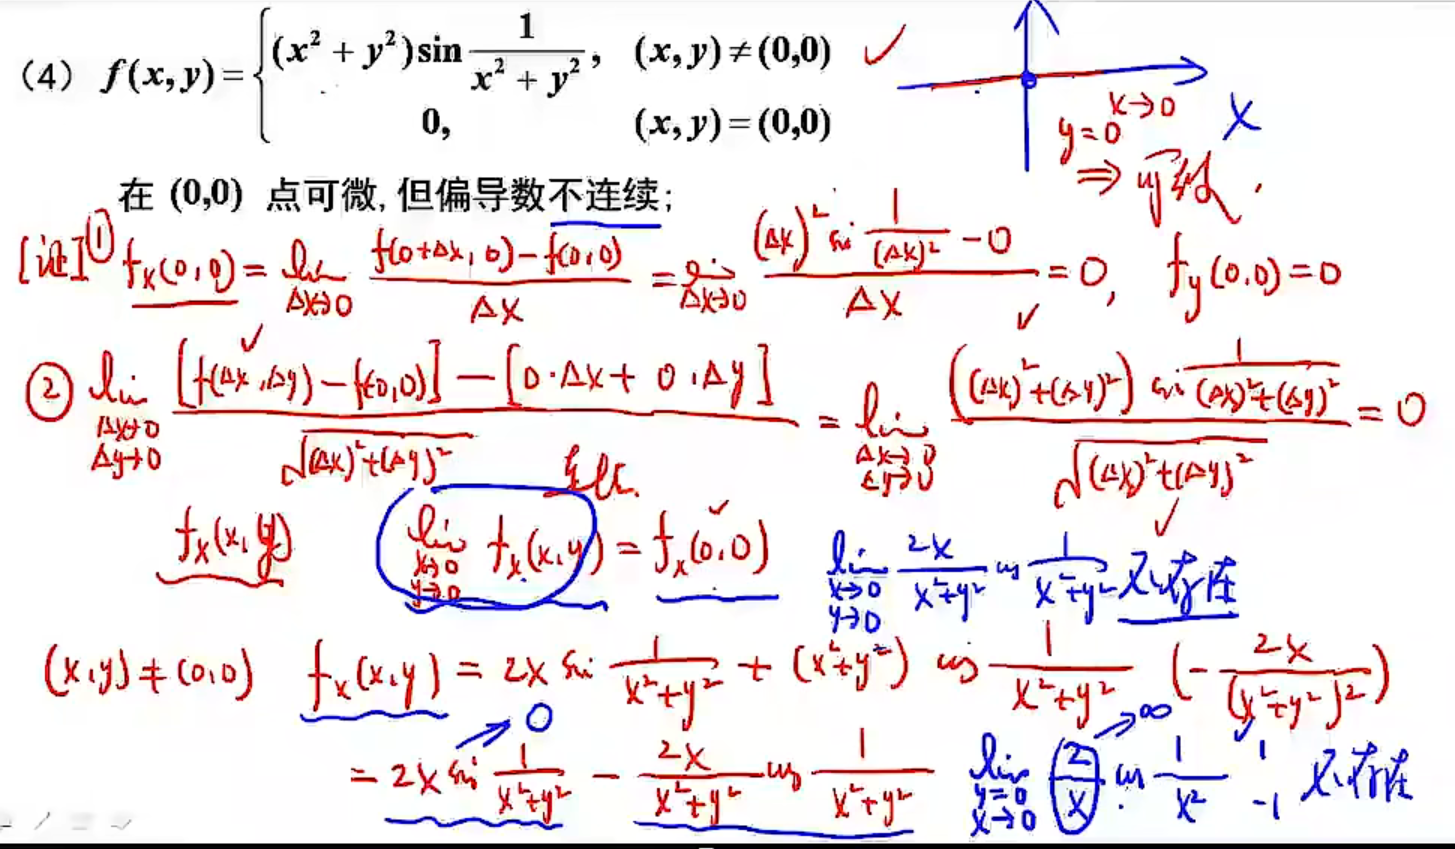 (4) f(x,y)={ (x²+y²)sin 1/(x²+y²), (x,y)≠(0,0)
0, (x,y)=(0,0)
在 (0,0) 点可微,但偏导数不连续;
x
x→0
y=0
⇒ 可微.
[证]① f_x(0,0)=lim_{Δx→0} (f(0+Δx,0)-f(0,0))/Δx = lim_{Δx→0} ((Δx)² sin 1/(Δx)² -0)/Δx =0, f_y(0,0)=0
② lim_{Δx→0 Δy→0} ([f(Δx,Δy)-f(0,0)]-[0·Δx+0·Δy])/√((Δx)²+(Δy)²) = lim_{Δx→0 Δy→0} (((Δx)²+(Δy)²) sin 1/((Δx)²+(Δy)²))/√((Δx)²+(Δy)²) =0
f_x(x,y) lim_{x→0 y→0} f_x(x,y)=f_x(0,0) lim_{x→0 y→0} 2x/(x²+y²) cos 1/(x²+y²) 不存在
(x,y)≠(0,0) f_x(x,y)=2x sin 1/(x²+y²) + (x²+y²) cos 1/(x²+y²) (-2x/(x²+y²)²)
→0 →∞
=2x sin 1/(x²+y²) - 2x/(x²+y²) cos 1/(x²+y²) lim_{y=0 x→0} 2/x · cos 1/x² 1 -1 不存在